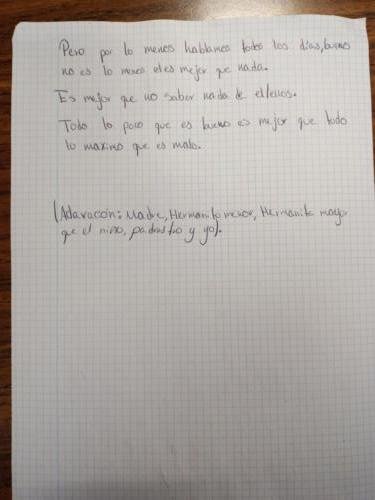 Pero por lo menos hablamos todos los días, bueno
no es lo mismo el es mejor que nada.
Es mejor que no saber nada de el/ellos.
Todo lo poco que es bueno es mejor que todo
lo maximo que es malo.
(Aclaración: Madre, Hermanito menor, Hermanito mayor
que el niño, padrastro y yo).